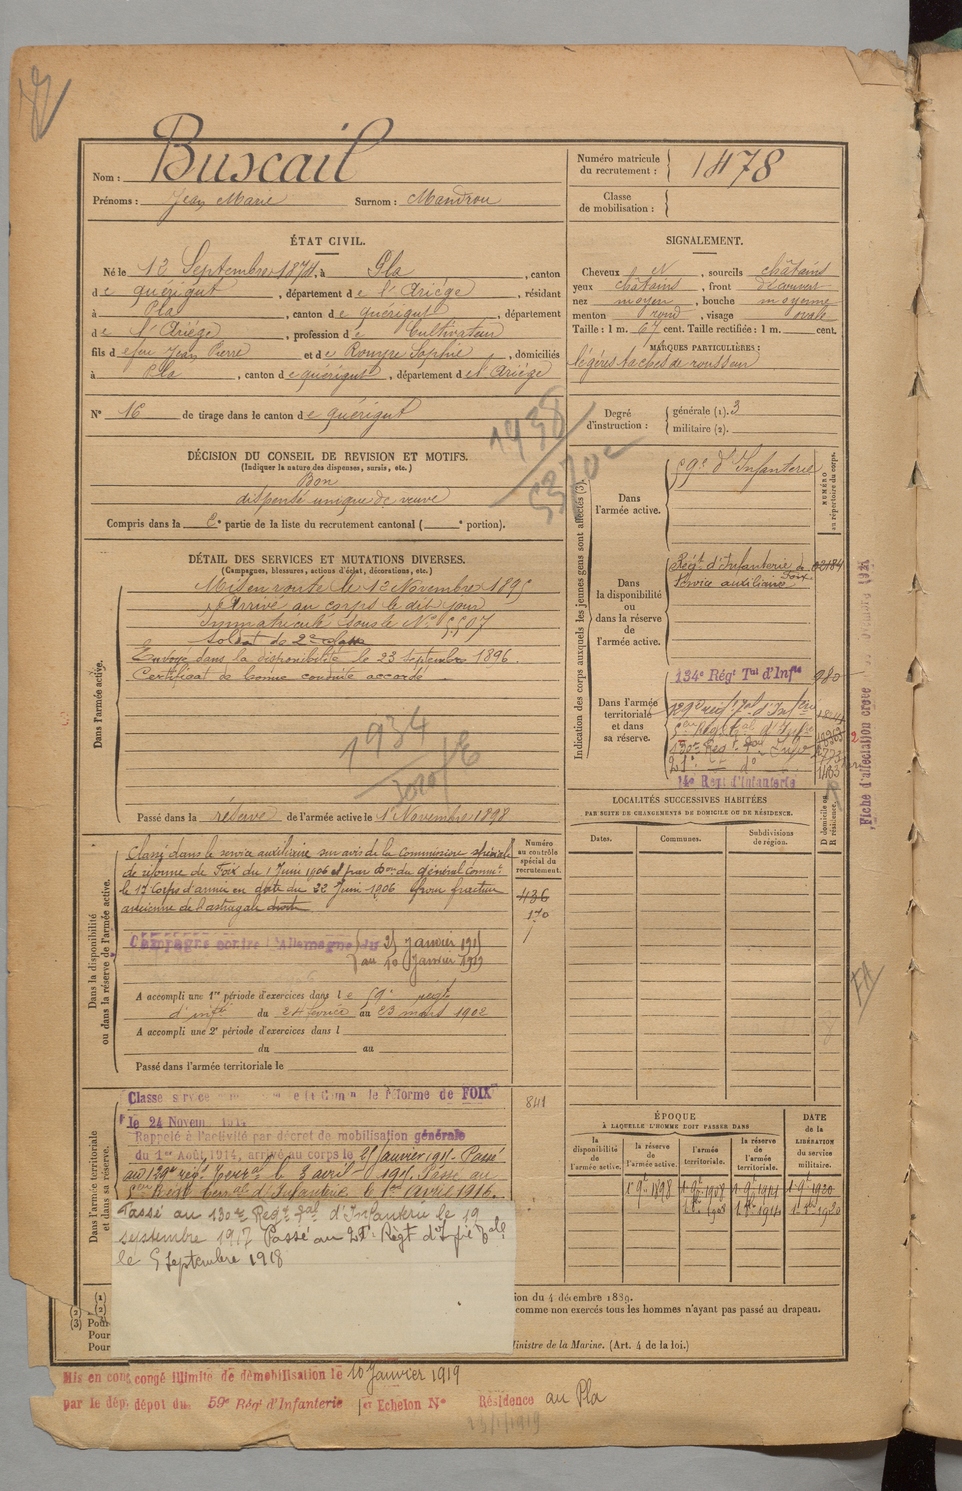 Nom : Buscail
Prénoms : Jean Marie Surnom : Mandrou
Numéro matricule du recrutement : 1478
Classe de mobilisation :
ÉTAT CIVIL.
Né le 12 Septembre 1874 à Pla, canton
de quérigut, département de l'Ariège, résidant
à Pla, canton de quérigut, département
de l'Ariège, profession de Cultivateur
fils de feu Jean Pierre et de Rouyre Sophie, domiciliés
à Pla, canton de quérigut, département de l'Ariège
N° 16 de tirage dans le canton de quérigut
SIGNALEMENT.
Cheveux , sourcils châtains
yeux châtains, front découvert
nez moyen, bouche moyenne
menton rond, visage ovale
Taille : 1 m. 67 cent. Taille rectifiée : 1 m. cent.
MARQUES PARTICULIÈRES :
légères taches de rousseur
Degré d'instruction : générale (1). 3
militaire (2).
DÉCISION DU CONSEIL DE REVISION ET MOTIFS.
(Indiquer la nature des dispenses, sursis, etc.)
Bon
dispensé unique de veuve
Compris dans la 2e partie de la liste du recrutement cantonal ( e portion).
1938
DÉTAIL DES SERVICES ET MUTATIONS DIVERSES.
(Campagnes, blessures, actions d'éclat, décorations, etc.)
Dans l'armée active.
Mis en route le 12 Novembre 1895
Arrivé au corps le dit jour
Immatriculé sous le N° 5507
Soldat de 2e classe
Envoyé dans la disponibilité le 23 septembre 1896.
Certificat de bonne conduite accordé.
1934
Passé dans la réserve de l'armée active le 1er Novembre 1898
Indication des corps auxquels les jeunes gens sont affectés (3).
NUMÉRO au répertoire du corps.
Dans l'armée active.
59e d'Infanterie
Dans la disponibilité ou dans la réserve de l'armée active.
Régt d'Infanterie de Foix
Service auxiliaire
Dans l'armée territoriale et dans sa réserve.
134e Régt Tal d'Infie 980
129e régt Tal d'Infie
130e Régt Tal Infie
21e do
14e Regt d'Infanterie
Fiche d'affectation créée
LOCALITÉS SUCCESSIVES HABITÉES
PAR SUITE DE CHANGEMENTS DE DOMICILE OU DE RÉSIDENCE.
Dates. Communes. Subdivisions de région. D domicile ou R résidence.
Dans la disponibilité ou dans la réserve de l'armée active.
Numéro au contrôle spécial du recrutement.
436
170
Classé dans le service auxiliaire sur avis de la Commission spéciale
de réforme de Foix du 1 Juin 1906 et par Don du général Commt
le 17 Corps d'armée en date du 22 Juin 1906 pour fracture
ancienne de l'astragale droit
Campagne contre l'Allemagne du 25 Janvier 1915
au 10 Janvier 1919
A accompli une 1re période d'exercices dans le 59e régt
d'infie du 24 février au 23 mars 1902
A accompli une 2e période d'exercices dans l
du au
Passé dans l'armée territoriale le
Dans l'armée territoriale et dans sa réserve.
841
Classé service de réforme de FOIX
le 24 Novem 1914
Rappelé à l'activité par décret de mobilisation générale
du 1er Août 1914, arrivé au corps le 25 Janvier 1915. Passé
au 129e régt Terral le 3 avril 1915. Passé au
Regt terral d'Infanterie le 1er avril 1916.
Passé au 130me Regt Tal d'Infanterie le 19
septembre 1917 Passé au 21e Régt d'Infie Tale
le 5 Septembre 1918
ÉPOQUE
À LAQUELLE L'HOMME DOIT PASSER DANS
la disponibilité de l'armée active. la réserve de l'armée active. l'armée territoriale. la réserve de l'armée territoriale.
DATE de la LIBÉRATION du service militaire.
1 9bre 1898 1 9bre 1908 1 9bre 1914 1 9bre 1920
1 8bre 1908 1 8bre 1914 1 8bre 1920
(1)
(2) (2)
(3) Pour
Pour
Pour
ion du 4 décembre 1889.
comme non exercés tous les hommes n'ayant pas passé au drapeau.
Ministre de la Marine. (Art. 4 de la loi.)
Mis en cong congé illimité de démobilisation le 10 Janvier 1919
par le dép. dépot du 59e Régt d'Infanterie 1er Echelon N° Résidence au Pla